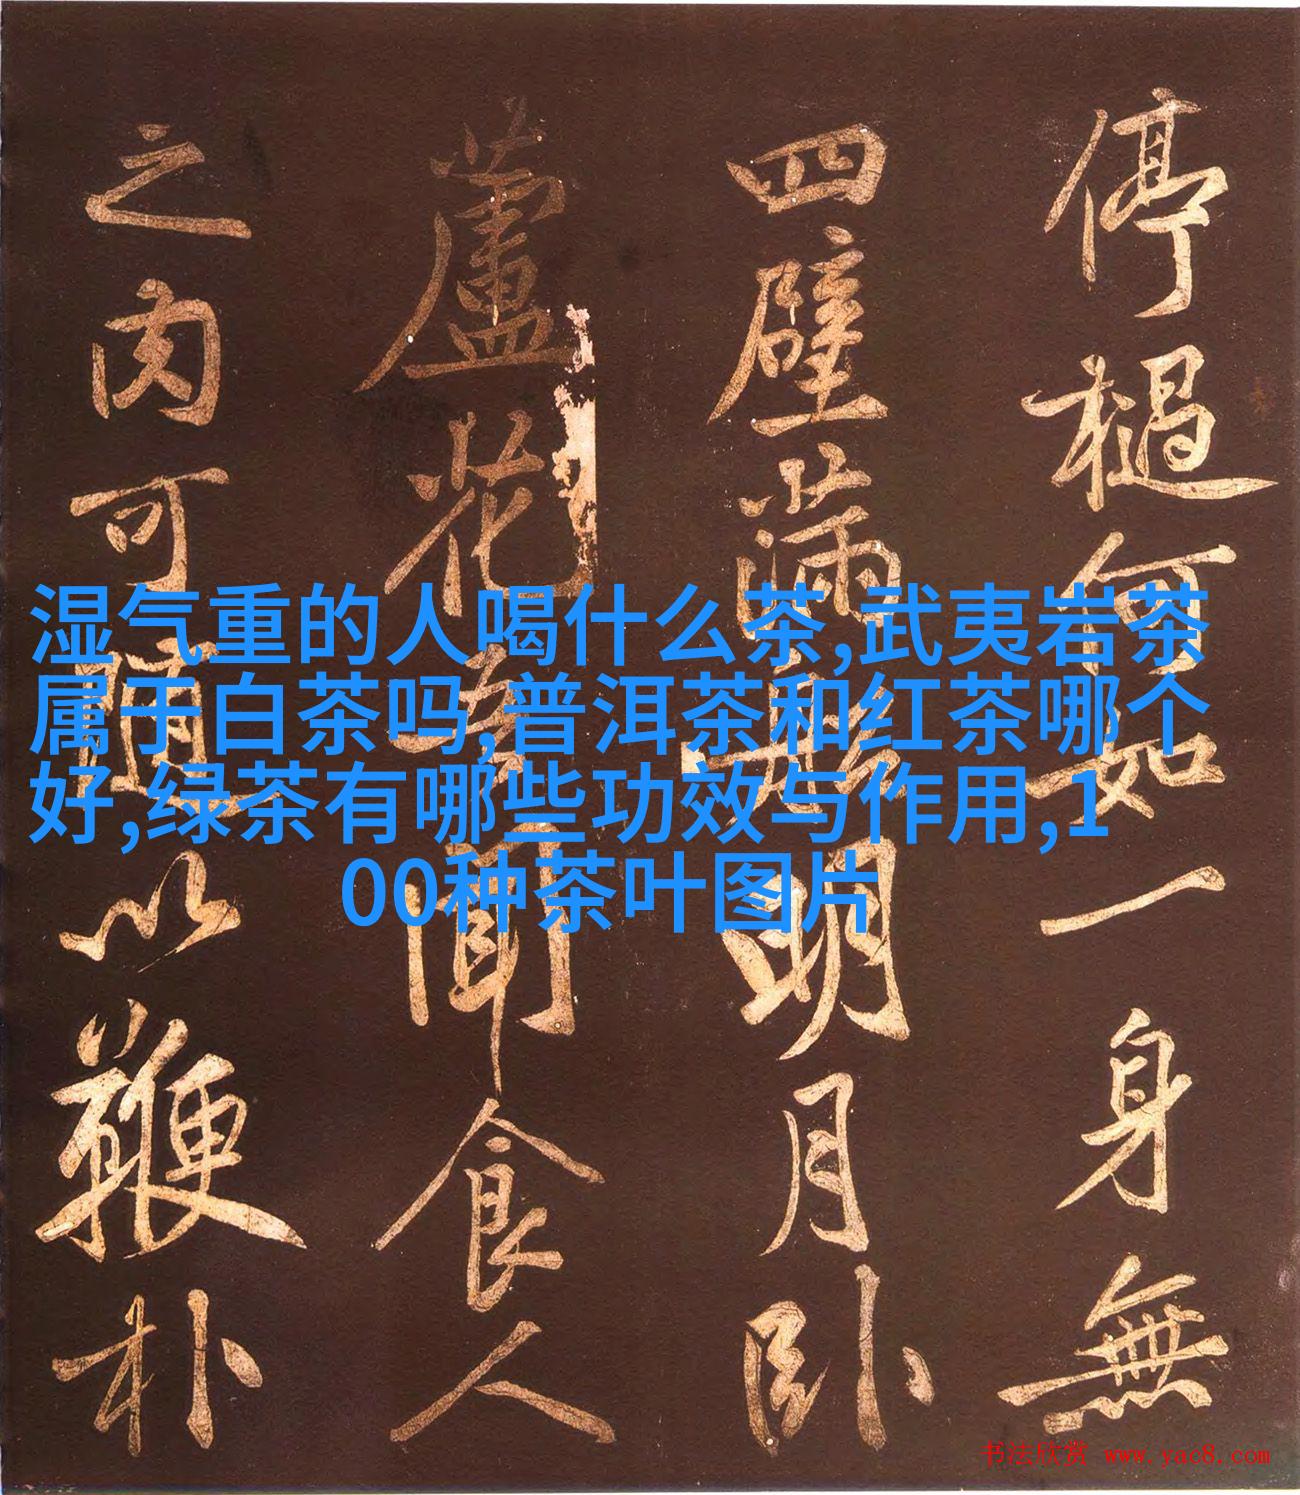 停檛何如一身無
四壁滿無明月卧
蘆花吾聞食人
之肉可随以鞭朴
湿气重的人喝什么茶,武夷岩茶
属于白茶吗,普洱茶和红茶哪个
好,绿茶有哪些功效与作用,1
00种茶叶图片
书法欣赏 www.yac8.com